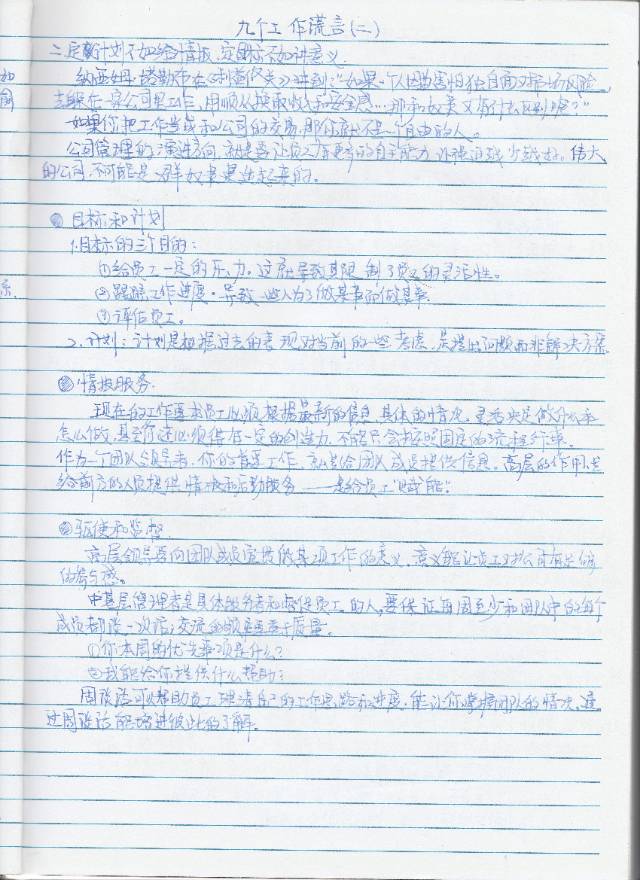 九个工作谎言(二)
二、定计划不如给情报,定目标不如讲意义
纳西姆·塔勒布在《利益攸关》讲到:"如果一个人因为害怕独自面对市场风险,
去躲在一家公司里工作,用顺从换取收入和安全感…那和奴隶又有什么区别呢?"
如果你把工作当成和公司的交易,那你就不是一个自由的人。
公司管理的演进方向,就是要让员工有更多的自主能力,让强迫越少越好。伟大
的公司,不可能是一群奴隶建造起来的。
目标和计划
1.目标的三个目的:
①给员工一定的压力。这就导致其限制了员工的灵活性。
②跟踪工作进度。导致一些人为了做某事而做某事
③评估员工。
2.计划:计划是根据过去的表现对当前的一些考虑,是提出问题而非解决方案
情报服务
现在的工作要求员工必须根据最新的信息,具体的情况,灵活决定做什么和
怎么做,甚至你还必须得有一定的创造力,不能只会按照固定的流程行事。
作为一个团队领导者,你的首要工作,就是给团队成员提供信息。高层的作用是
给前方的人员提供情报和后勤服务——是给员工"赋能"。
驱使和监督
高层领导要向团队成员宣授做某项工作的意义,意义能让员工对公司有足够
的参与感。
中基层管理者是具体服务者和督促员工的人,要保证每周至少和团队中的每个
成员都谈一次话,交流的频度要高于质量。
①你本周的优先事项是什么?
②我能给你提供什么帮助?
周谈话可以帮助员工理清自己的工作思路和进度,能让你掌握团队的情况,通
过周谈话能增进彼此的了解。